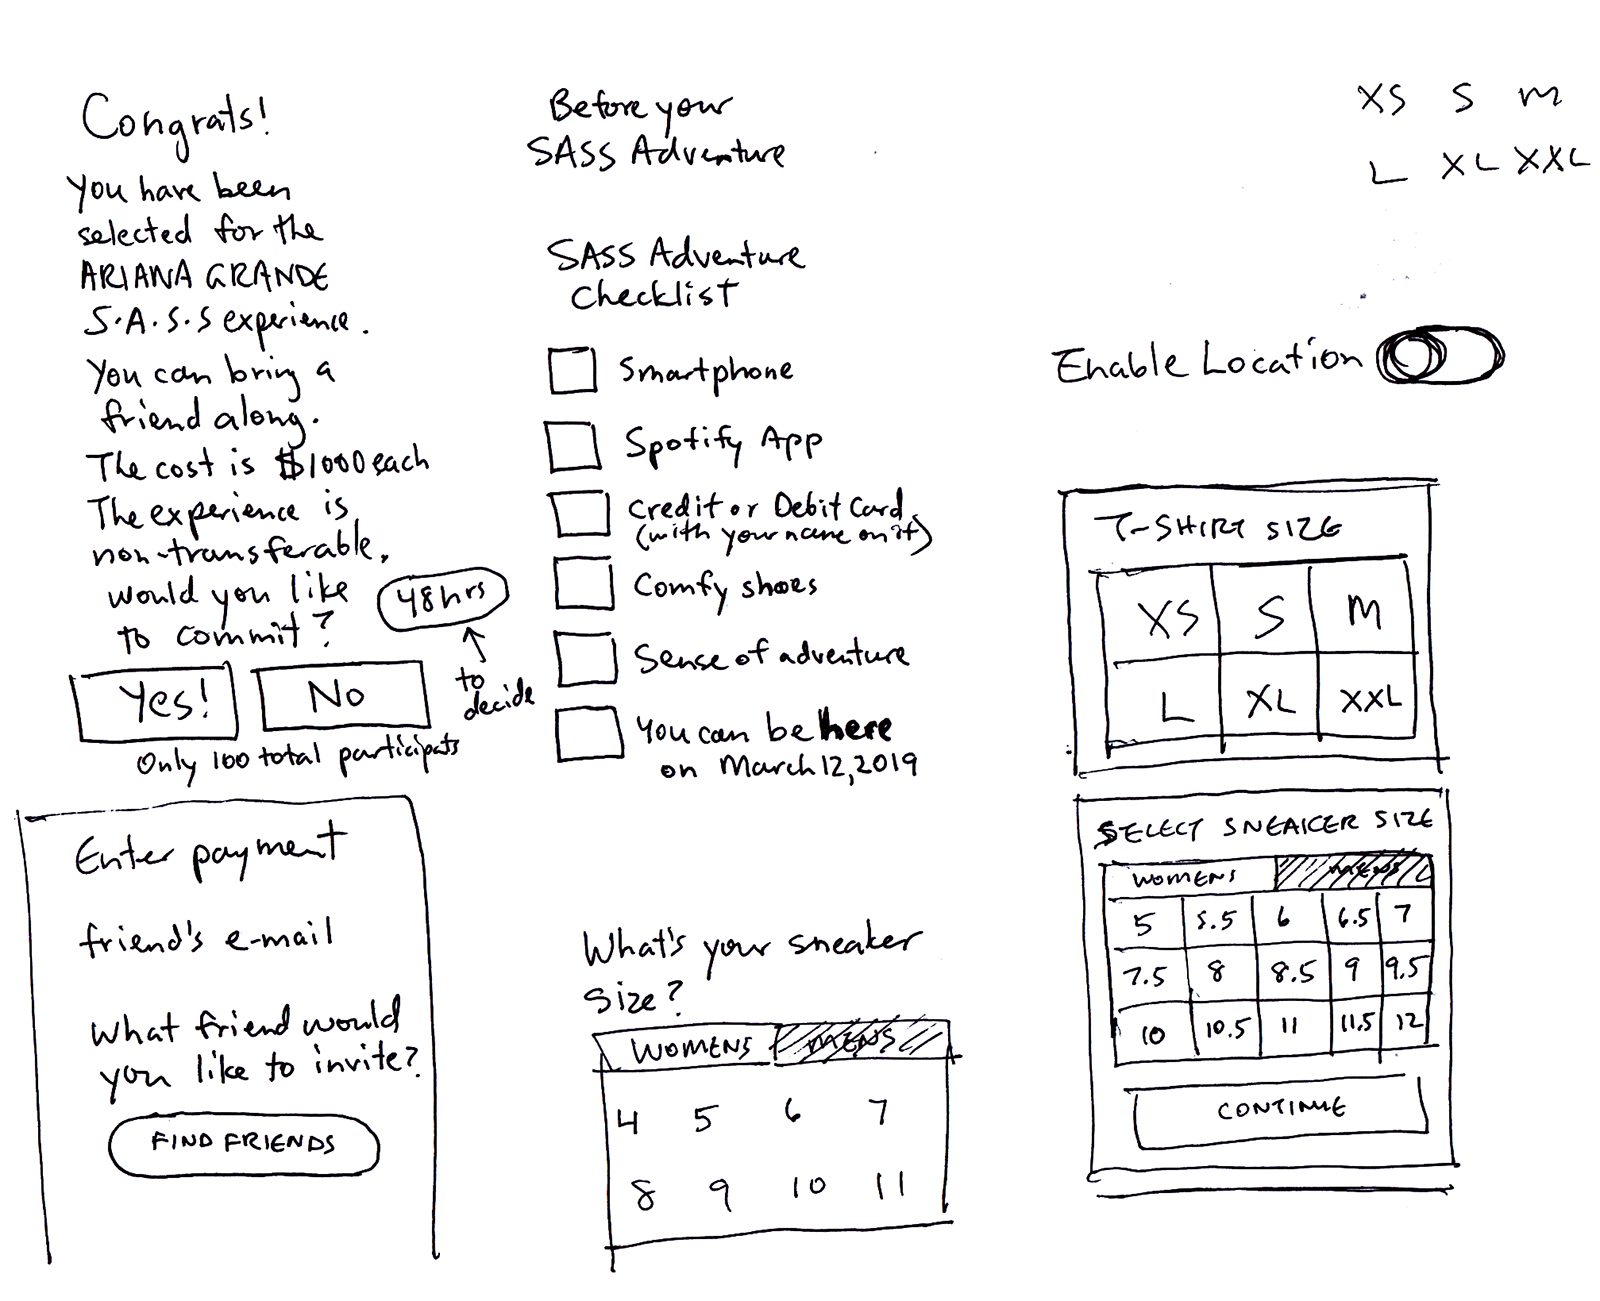 Congrats!
You have been
selected for the
ARIANA GRANDE
S.A.S.S experience.
You can bring a
friend along.
The cost is $1000 each
The experience is
non-transferable.
would you like
to commit?
48hrs
to
decide
Yes!
No
Only 100 total participats
Enter payment
friend's e-mail
What friend would
you like to invite?
FIND FRIENDS
Before your
SASS Adventure
SASS Adventure
Checklist
Smartphone
Spotify App
Credit or Debit Card
(with your name on it)
Comfy shoes
Sense of adventure
You can be here
on March 12, 2019
What's your sneaker
size?
WOMENS MENS
4 5 6 7
8 9 10 11
XS S M
L XL XXL
Enable Location
T-SHIRT SIZE
XS S M
L XL XXL
SELECT SNEAKER SIZE
WOMENS MENS
5 5.5 6 6.5 7
7.5 8 8.5 9 9.5
10 10.5 11 11.5 12
CONTINUE